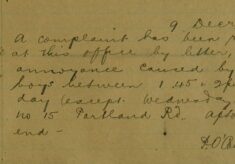 9 Decr
A complaint has been
at this office by letter,
annoyance caused by
boys between 1.45 & 2p
day (except Wednesday
no 15 Partland Rd.
end -